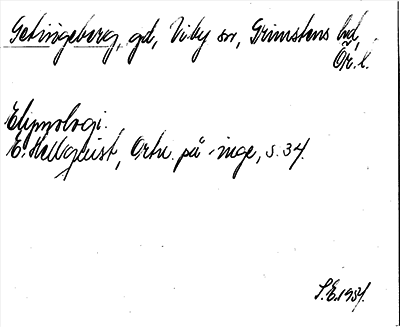 Getingeberg, gd, Viby sn, Grimstens hd,
Ör. l.
Etymologi.
E. Hellquist, Ortn. på -inge, s. 34.
S.E. 1954.